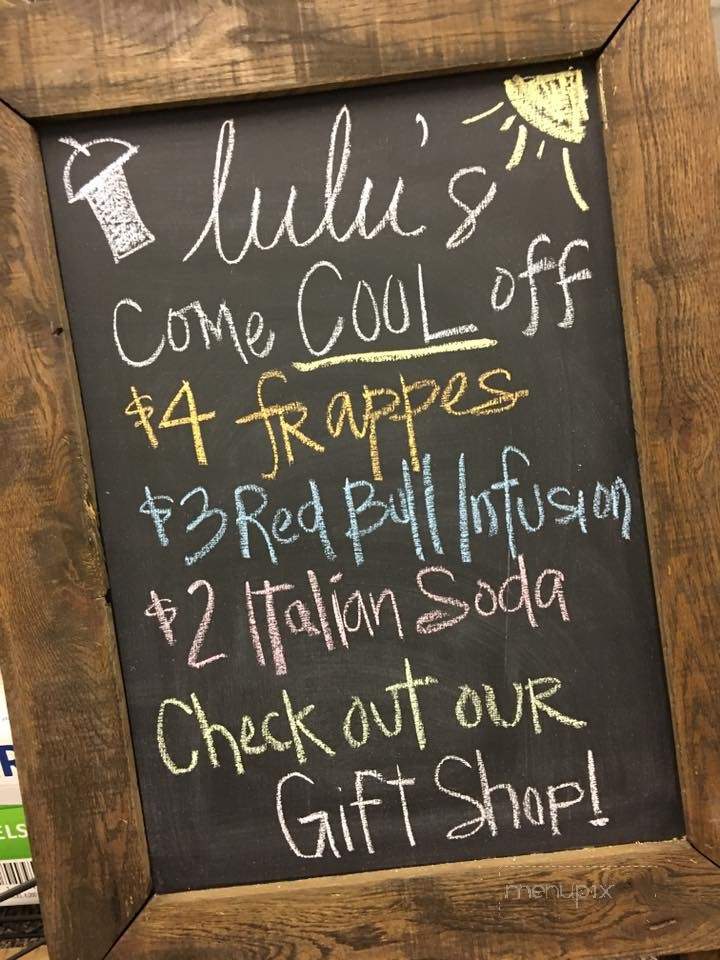 lulu's
Come COOL off
$4 frappes
$3 Red Bull Infusion
$2 Italian Soda
Check out our
Gift Shop!
ELS
menupix